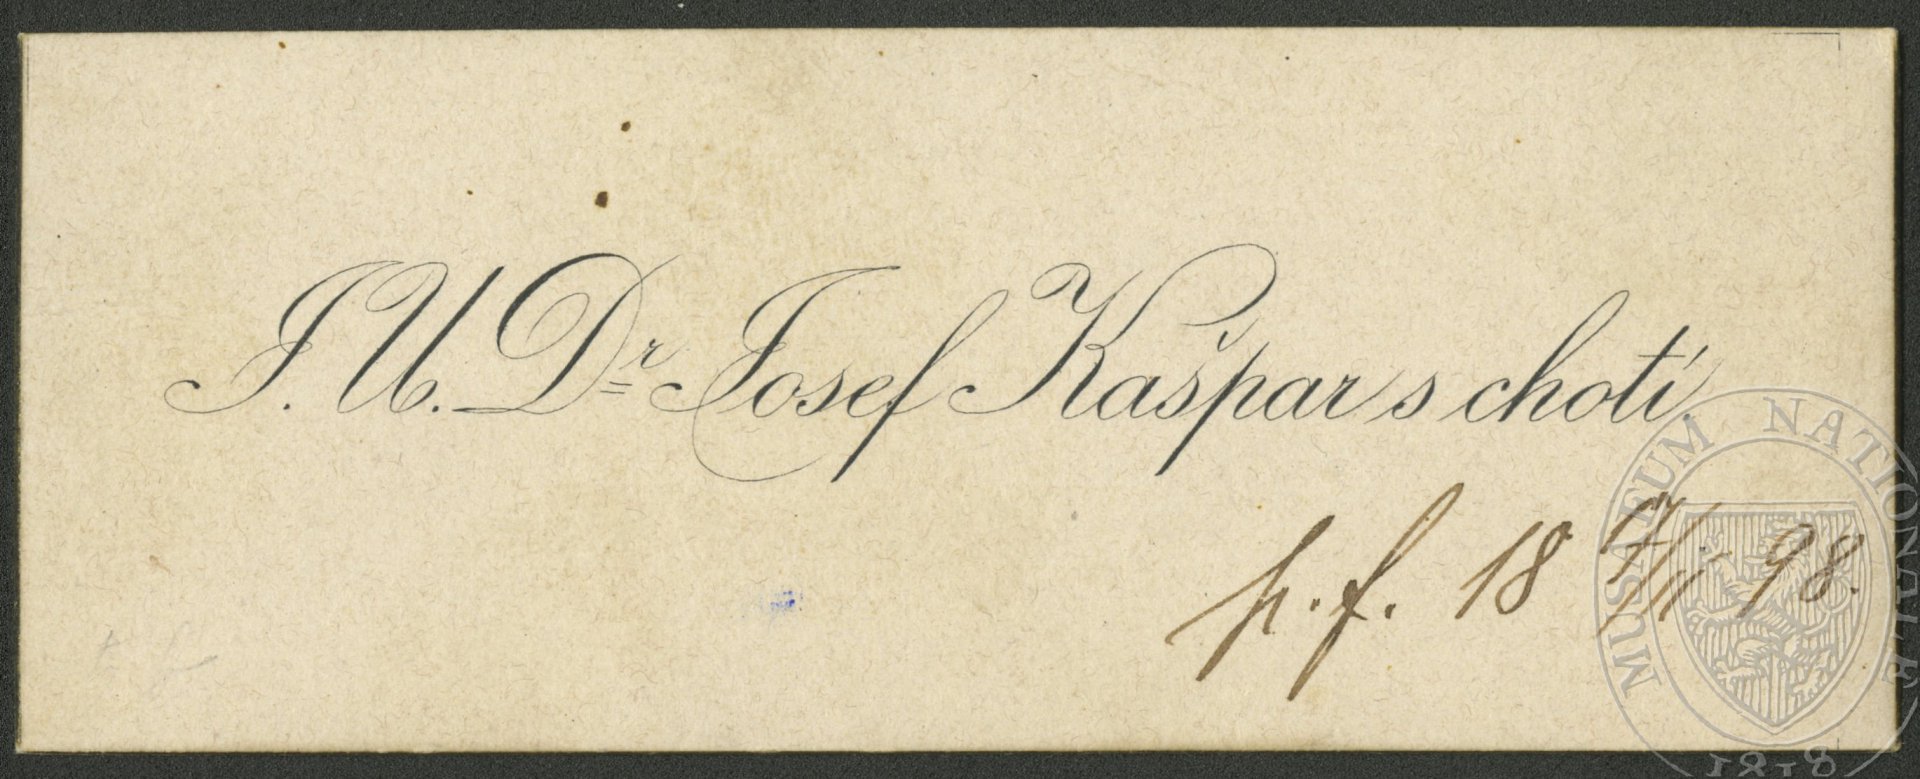 J. U. Dr Josef Kašpar s chotí.
p. f. 18 17/II 98.
MUSAEUM NATIONALE
1818